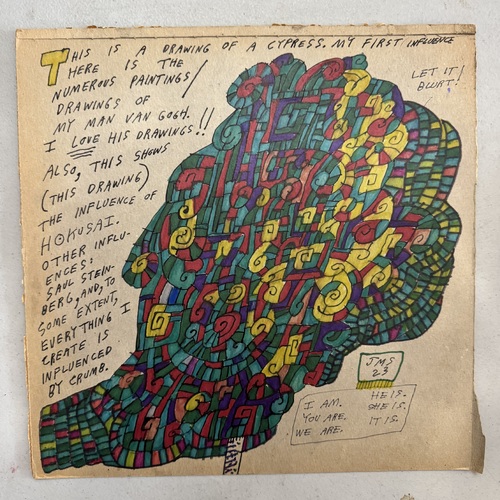 THIS IS A DRAWING OF A CYPRESS. MY FIRST INFLUENCE
HERE IS THE
NUMEROUS PAINTINGS/
DRAWINGS OF
MY MAN VAN GOGH.
I LOVE HIS DRAWINGS!!
ALSO, THIS SHOWS
(THIS DRAWING)
THE INFLUENCE OF
HOKUSAI.
OTHER INFLU-
ENCES:
SAUL STEIN-
BERG, AND, TO
SOME EXTENT,
EVERYTHING I
CREATE IS
INFLUENCED
BY CRUMB.
LET IT
BLURT!
JMS
23
I AM. HE IS.
YOU ARE. SHE IS.
WE ARE. IT IS.